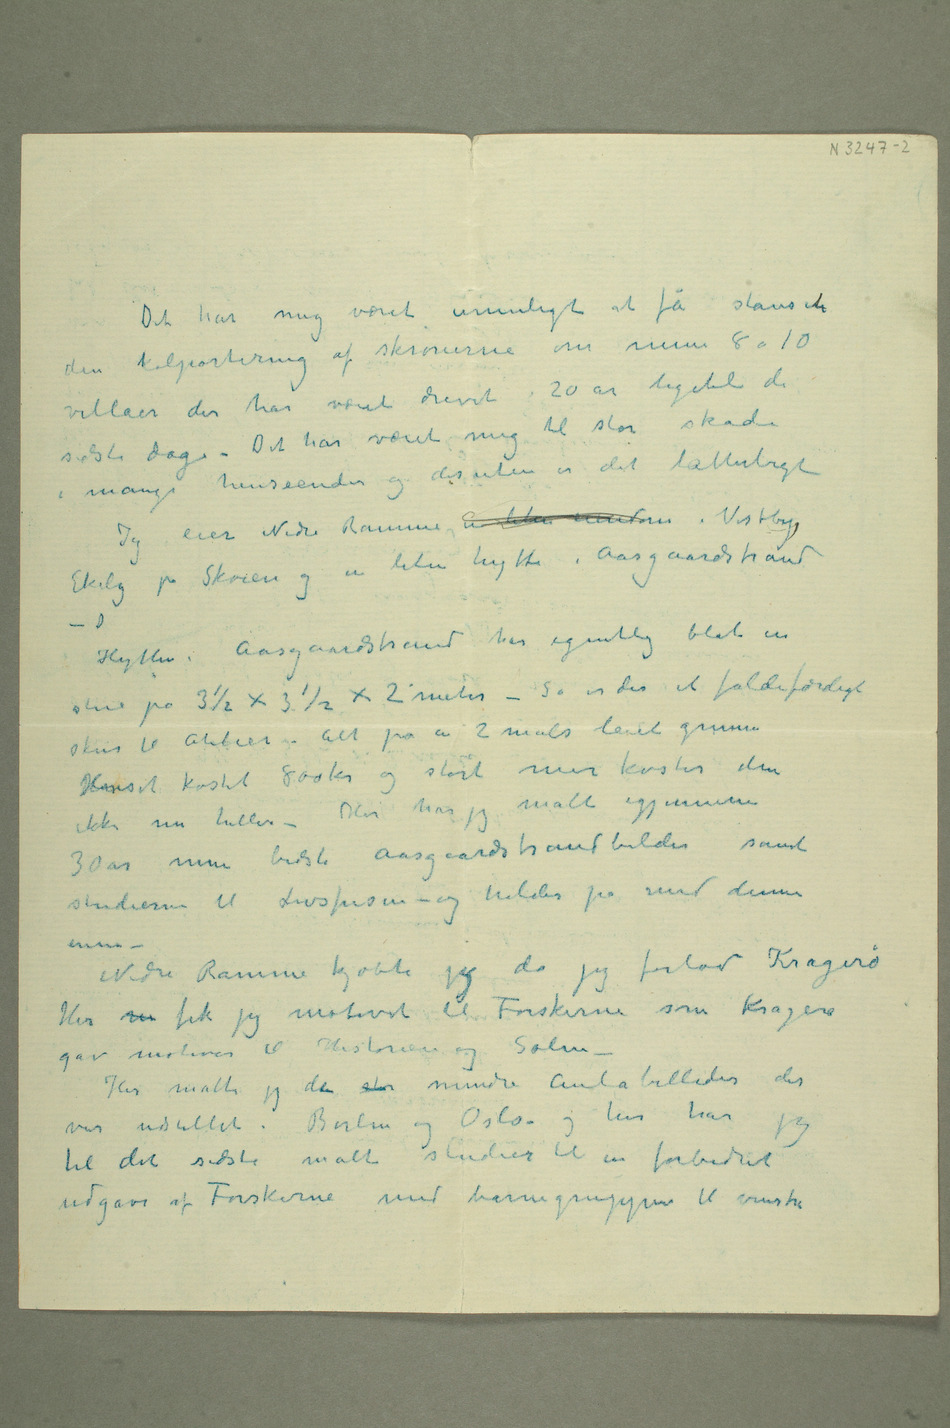 N 3247-2
Det har mig været umuligt at få stanset
den kolportering af skrønerne om mine 8 a 10
villaer der har været drevet i 20 år ligetil de
sidste dage – Det har været mig til stor skade
i mange henseender og desuten er det latterligt
Jeg eier Nedre Ramme i Vestby,
Ekely på Skøien og en liten hytte i Aasgaardstrand
–
Hytten i Aasgaardstrand har egentlig blot en
stue på 3½ × 3½ × 2 meter – Så er der et faldefærdigt
skur til atelier. Alt på en 2 mals leiet grunn
Huset kostet 800 kr og stort mer koster den
ikke nu heller – Her har jeg malt igjennem
30 år mine bedste Aasgaardstrandbilder samt
studierne til Livsfrisen – og holder på med denne
ennu –
Nedre Ramme kjøbte jeg da jeg forlod Kragerø
Her fik jeg motivet til Forskerne som Kragerø
gav motiver til Historien og Solen –
Her malte jeg de mindre Aulabilleder der
var udstillet i Berlin og Oslo og her har jeg
til det sidste malt studier til en forbedret
udgave af Forskerne med barnegruppen til venstre